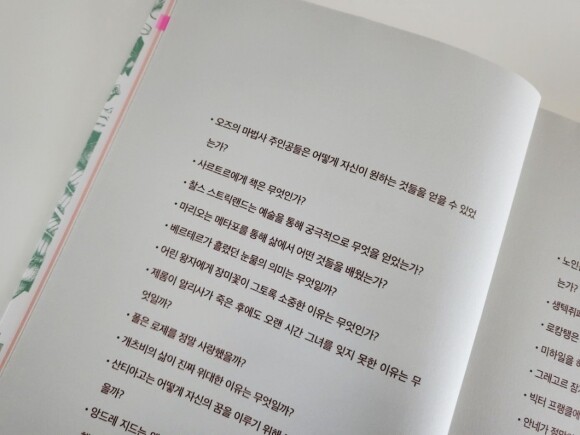 • 오즈의 마법사 주인공들은 어떻게 자신이 원하는 것들을 얻을 수 있었
는가?
• 사르트르에게 책은 무엇인가?
• 찰스 스트릭랜드는 예술을 통해 궁극적으로 무엇을 얻었는가?
• 마리오는 메타포를 통해 삶에서 어떤 것들을 배웠는가?
• 베르테르가 흘렸던 눈물의 의미는 무엇일까?
• 어린 왕자에게 장미꽃이 그토록 소중한 이유는 무엇인가?
• 제롬이 알리사가 죽은 후에도 오랜 시간 그녀를 잊지 못한 이유는 무
엇일까?
• 폴은 로제를 정말 사랑했을까?
• 개츠비의 삶이 진짜 위대한 이유는 무엇일까?
• 산티아고는 어떻게 자신의 꿈을 이루기 위해
을까?
• 앙드레 지드는
• 노인
는가?
• 생텍쥐페
• 로캉탱은
• 미하일을
• 그레고르 잠
• 빅터 프랭클에
• 안네가